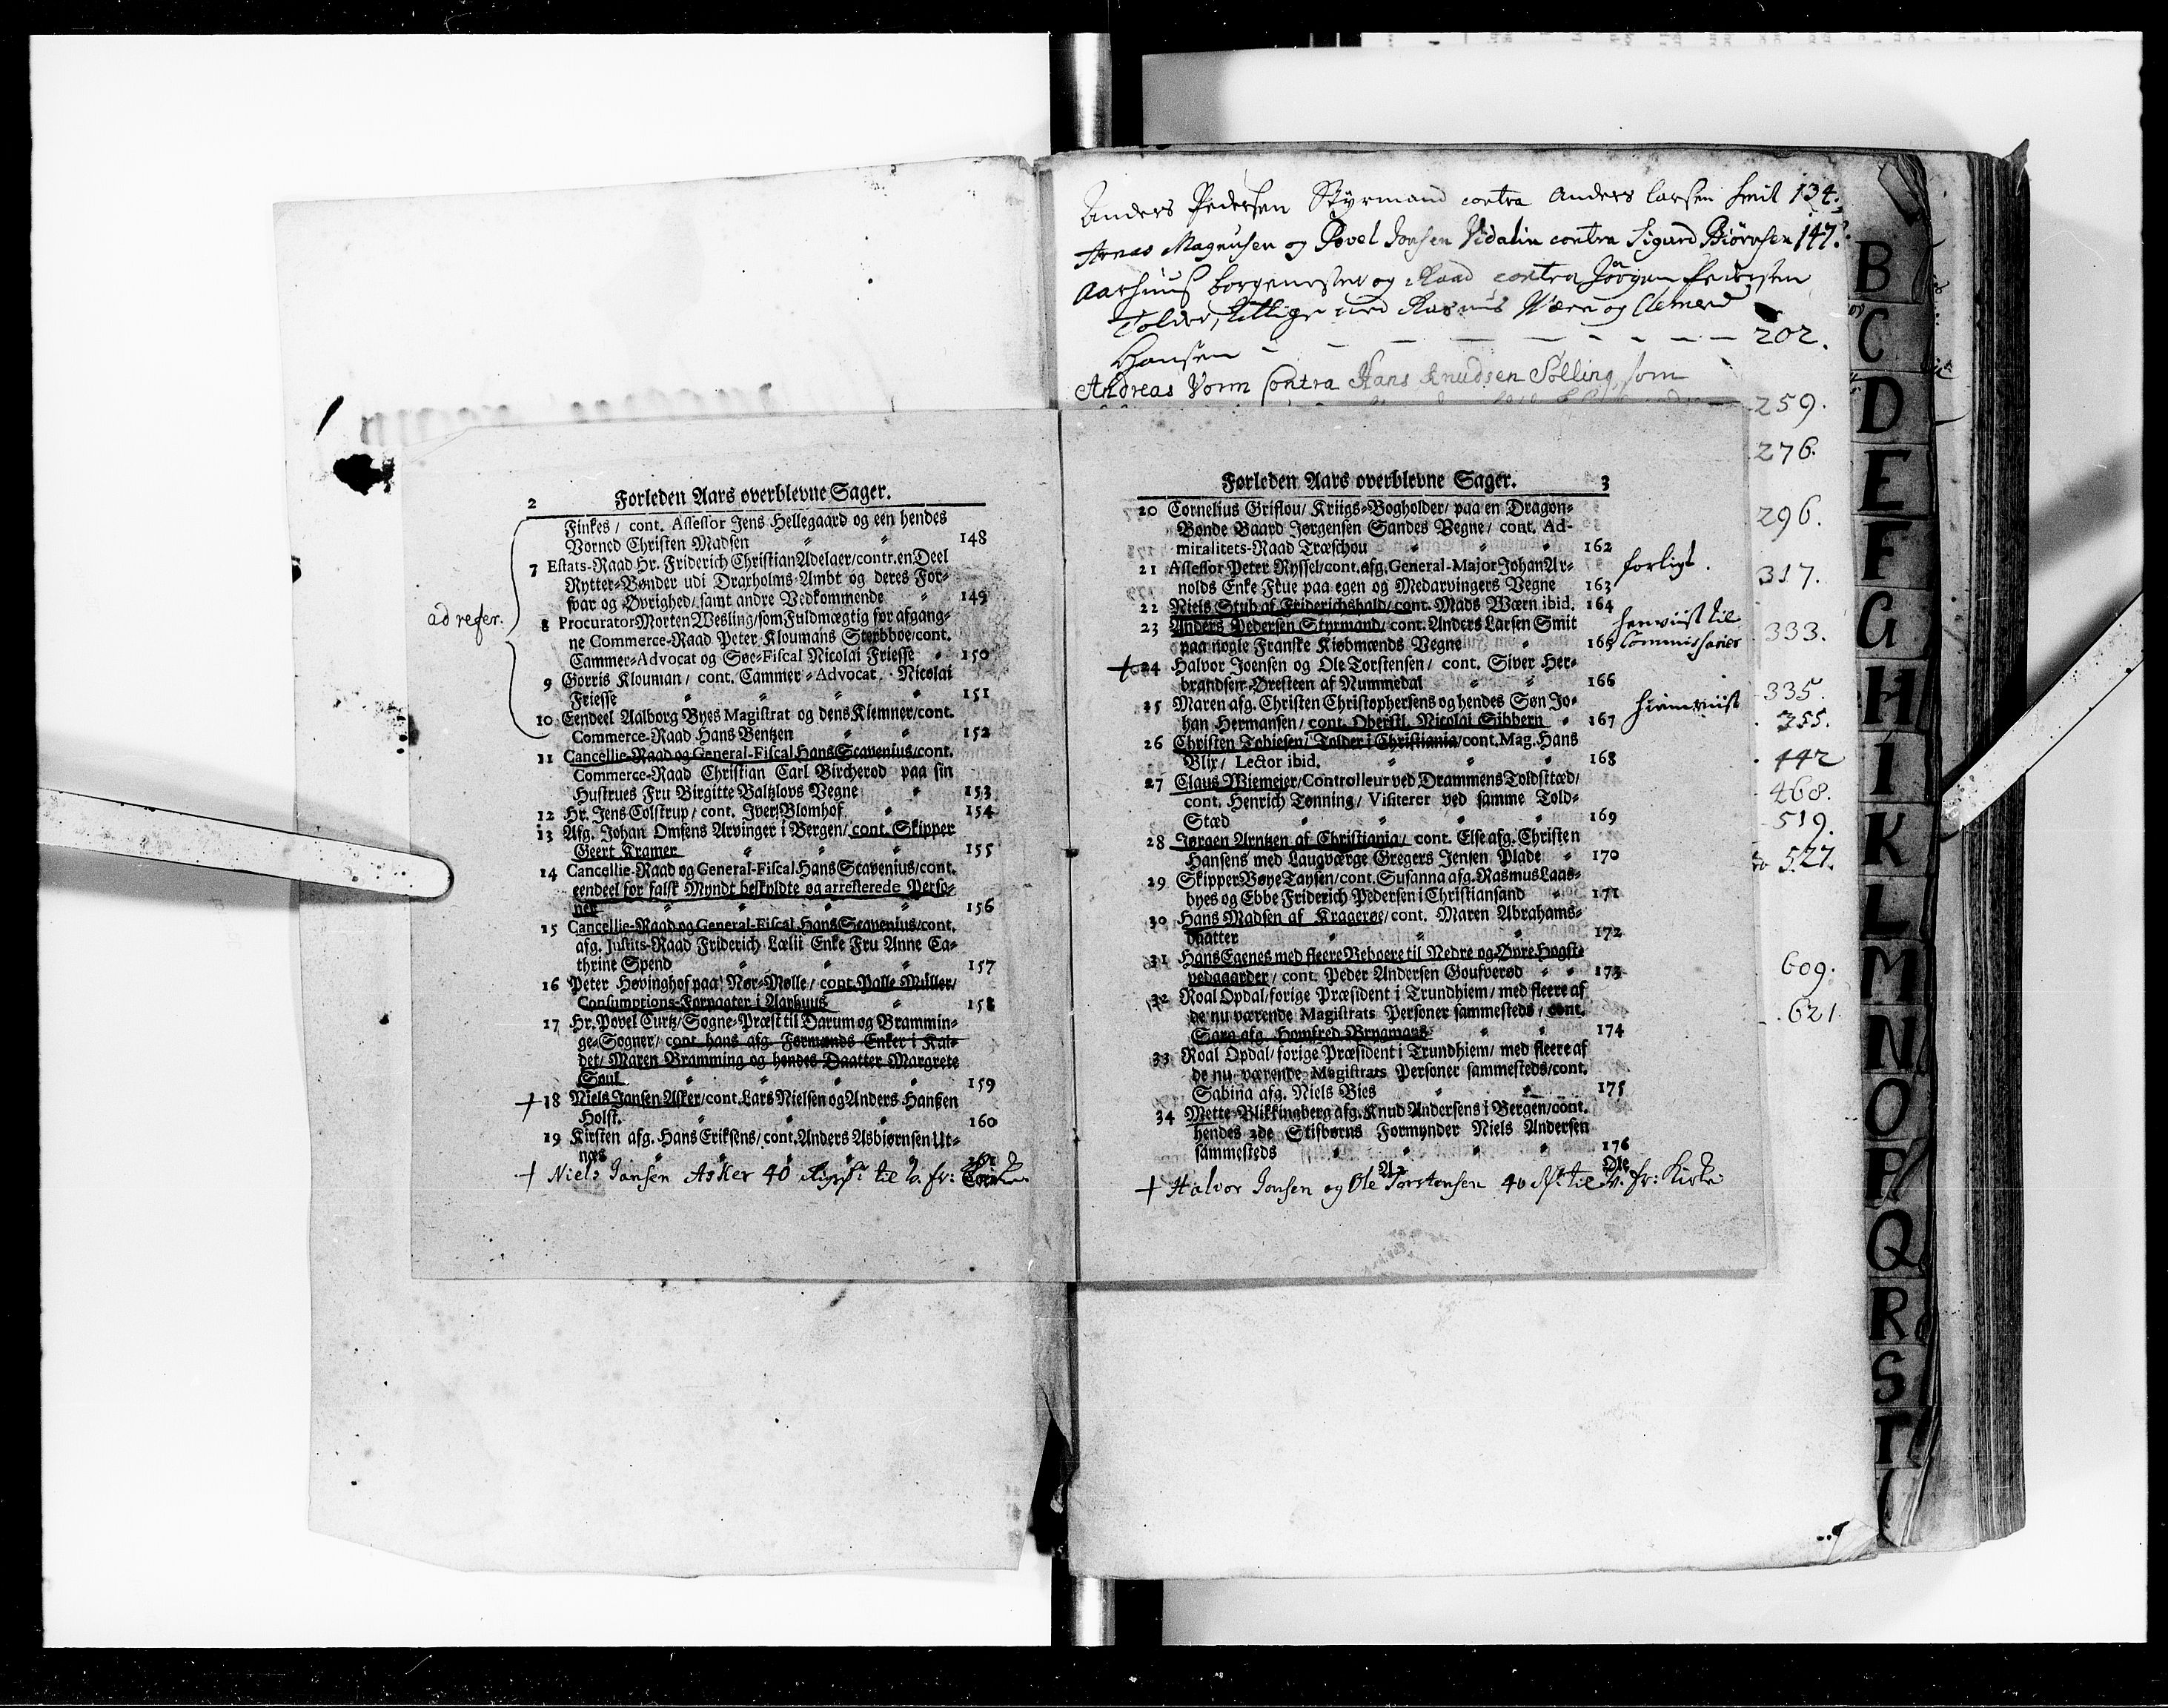 Anders Pedersen Styrmand contra Anders Larsen Smit 134.
Arnas Magnusen og Povel Jonsen Vidalin contra Sigurd Biörnsen 147.
Aarhuus borgemester og Raad contra Jörgen Pedersen
Tolder, tillige med Rasmus Wærn og Clemend
Hansen - - - - - - - - 202.
Andreas Vorm contra Hans Knudsen Sölling, som
259.
276.
296.
317.
333.
335.
355.
442
468.
519.
527.
609.
621
B
C
D
E
F
G
H
I
K
L
M
N
O
P
Q
R
S
T
2 Forleden Aars overblevne Sager.
Finkes / cont. Assessor Jens Hellegaard og een hendes
Vorned Christen Madsen 148
7 Estats-Raad Hr. Friderich Christian Adelaer/contr. en Deel
Rytter-Bønder udi Draxholms-Ambt og deres For-
svar og Øvrighed/ samt andre Vedkommende 149
ad refer.
8 Procurator Morten Wesling/som Fuldmægtig for afgang-
ne Commerce-Raad Peter Kloumans Sterbboe/cont.
Cammer-Advocat og Søe-Fiscal Nicolai Friesse 150
9 Gorris Klouman / cont. Cammer-Advocat Nicolai
Friesse 151
10 Eendeel Aalborg Byes Magistrat og dens Klemner/cont.
Commerce-Raad Hans Bentzen 152
11 Cancellie-Raad og General-Fiscal Hans Scavenius/cont.
Commerce-Raad Christian Carl Bircherod paa sin
Hustrues Fru Birgitte Baltzlovs Vegne 153
12 Hr. Jens Colstrup/ cont. Iver Blomhof 154
13 Afg. Johan Omsens Arvinger i Bergen/ cont. Skipper
Geert Kramer 155
14 Cancellie-Raad og General-Fiscal Hans Scavenius/cont.
eendeel for falsk Myndt beskyldte og arresterede Perso-
ner 156
15 Cancellie-Raad og General-Fiscal Hans Scavenius/cont.
afg. Justits-Raad Friderich Lælii Enke Fru Anne Ca-
thrine Spend 157
16 Peter Høvinghof paa Nør-Mølle/ cont. Palle Müller/
Consumptions-Forpagter i Aarhuus 158
17 Hr. Povel Curtz/Sogne-Præst til Darum og Brammin-
ge-Sogner/ cont. hans afg. Formands Enker i Kal-
det/ Maren Bramming og hendes Daatter Margrete
Søul 159
+ 18 Niels Jansen Asker/cont. Lars Nielsen og Anders Hantzen
Holst. 160
19 Kirsten afg. Hans Eriksens/ cont. Anders Asbjørnsen Ut-
næs 161
+ Niels Jansen Asker 40
Forleden Aars overblevne Sager. 3
20 Cornelius Griflou/ Kriigs-Bogholder/ paa en Dragon-
Bonde Baard Jørgensen Sandes Vegne/ cont. Ad-
miralitets-Raad Træschou 162
21 Assessor Peter Ryssel/cont. afg. General-Major Johan Ar-
nolds Enke Frue paa egen og Medarvingers Vegne 163 forligt.
22 Niels Stub af Friderichshald/ cont. Mads Wærn ibid. 164
23 Anders Pedersen Styrmand/ cont. Anders Larsen Smit
paa nogle Franske Kiøbmænds Vegne 165 henviist til Commissarier
+ 24 Halvor Joensen og Ole Torstensen / cont. Siver Her-
brandsen Øresteen af Nummedal 166
25 Maren afg. Christen Christophersens og hendes Søn Jo-
han Hermansen/ cont. Oberstl. Nicolai Sibbern 167 hiemviist
26 Christen Tobiesen/ Tolder i Christiania/cont. Mag. Hans
Blix/ Lector ibid. 168
27 Claus Wiemeier/Controlleur ved Drammens Toldsted/
cont. Henrich Tønning/ Visiterer ved samme Told-
Stæd 169
28 Jørgen Arntzen af Christiania/ cont. Else afg. Christen
Hansens med Laugværge Gregers Jensen Plade 170
29 Skipper Bøye Taysen/cont. Susanna afg. Rasmus Laas-
byes og Ebbe Friderich Pedersen i Christiansand 171
30 Hans Madsen af Kragerøe/cont. Maren Abrahams-
daatter 172
31 Hans Egenes med fleere Beboere til Nedre og Øvre Høgste-
vedgaarder / cont. Peder Andersen Goufverød 173
32 Roal Opdal/forige Præsident i Trundhiem/ med fleere af
de nu værende Magistrats Personer sammesteds / cont.
Sara afg. Homfred Brygmans 174
33 Roal Opdal/ forige Præsident i Trundhiem/ med fleere af
de nu værende Magistrats Personer sammesteds/cont.
Sabina afg. Niels Bies 175
34 Mette Blikkingberg afg. Knud Andersens i Bergen/cont.
hendes 3de Stifbørns Formynder Niels Andersen
sammesteds 176
A 2 Ole
+ Halvor Jonsen og Ole Torstensen 40 til v. fr: Kirke